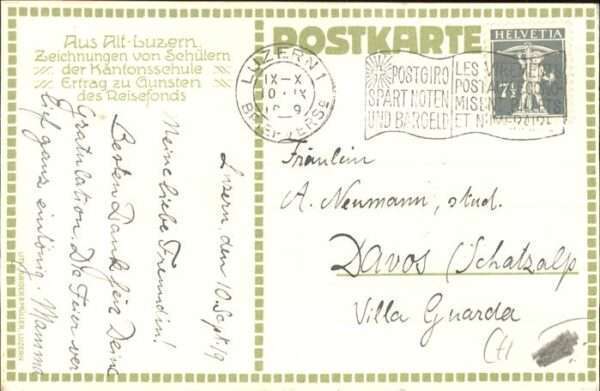 Aus Alt-Luzern
Zeichnungen von Schülern
der Kantonsschule
Ertrag zu Gunsten
des Reisefonds
POSTKARTE
HELVETIA
7½
LUZERN 1
IX-X
10. IX
19
BRIEFVERSD
POSTGIRO
SPART NOTEN
UND BARGELD
LES VIREMENTS
POSTAUX ECONO-
MISENT
ET NUMERAIRE
Luzern, den 10. Sept. 19
Meine liebe Freundin!
Besten Dank für Deine
Gratulation. Die Feier ver
lief ganz eintönig. Mamma
Fräulein
A. Neumann, stud.
Davos (Schatzalp
Villa Guarda
LUZERN